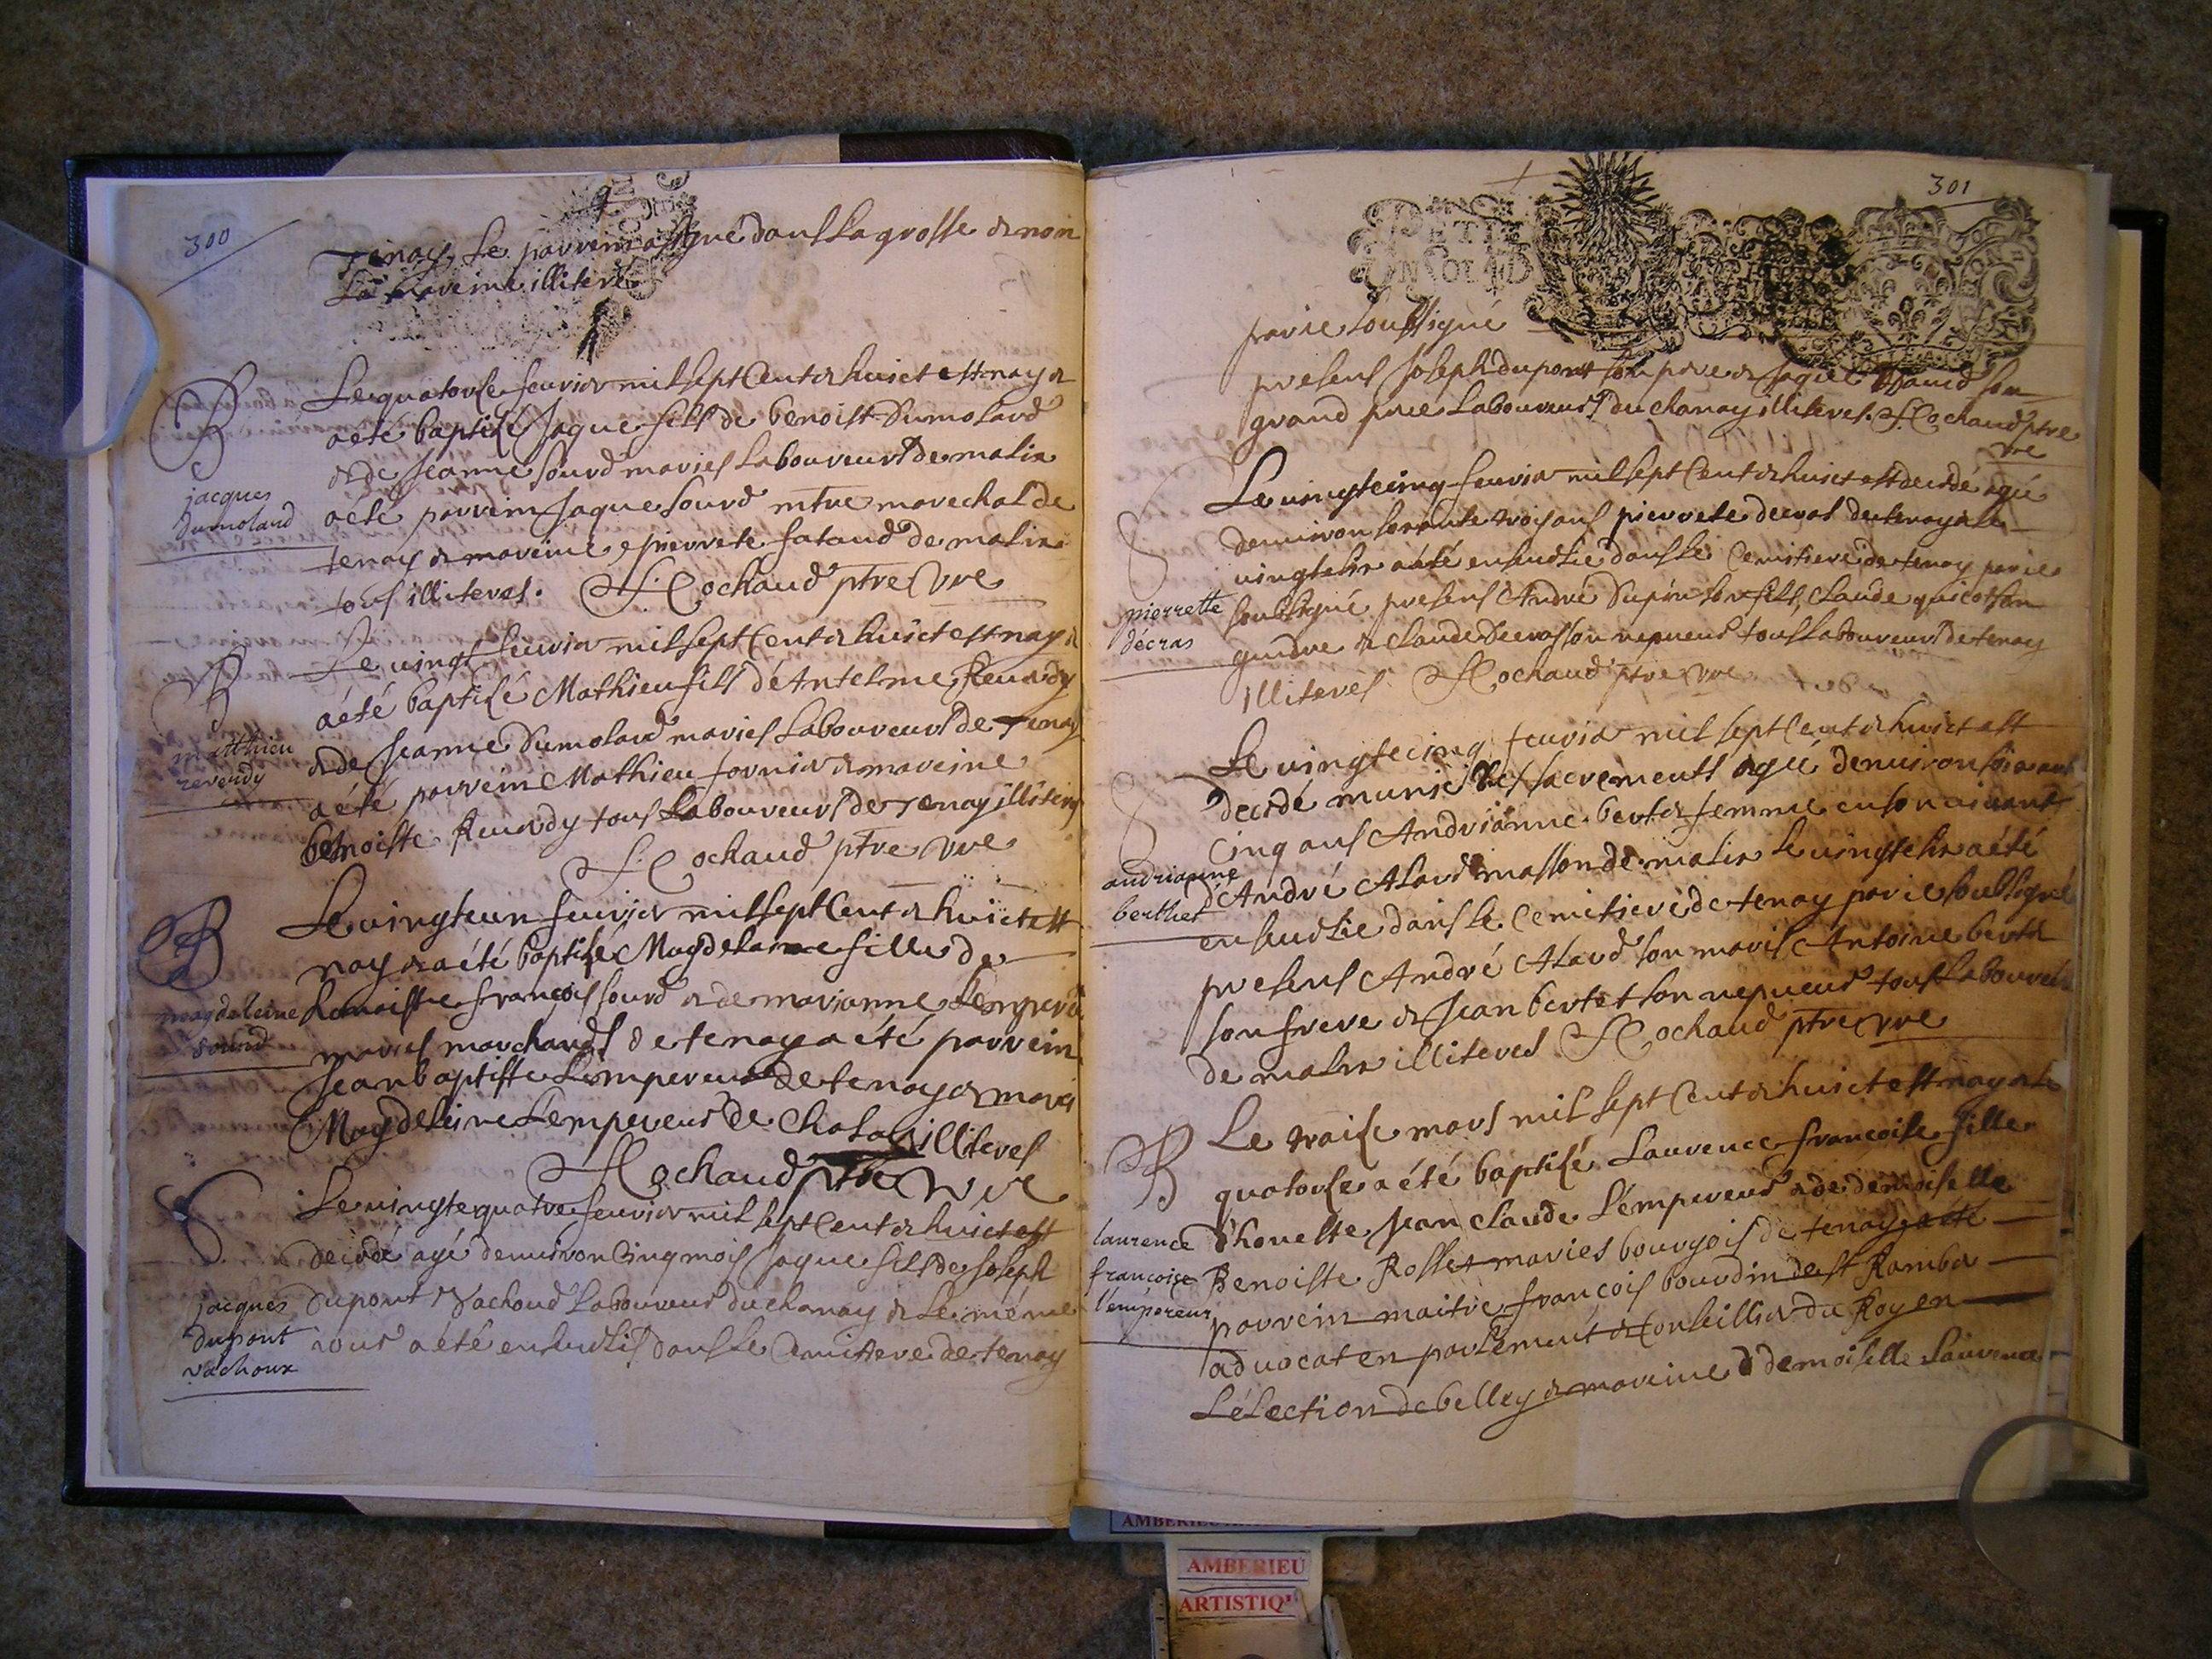 300
Tenay, le parrein a signé dans la grosse & non
La mareine illiteré
B
Le quatorse feuvier mil sept Cent & huict est nay &
a eté baptisé Jaque fils de benoist Dumolard
& de Jeanne sourd mariés Laboureurs de malix
a eté parrein Jaque sourd mtre marechal de
tenay & mareine pierrete fataud de malix
tous illiteres. F. Cochaud ptre vre
jacques
dumolard
B
Le vingt feuvier mil sept Cent & huict est nay &
a eté baptisé Mathieu fils d'Antelme Reuerdy
& de Jeanne Dumolard mariés Laboureurs de Tenay
a eté parrein Mathieu fornier & mareine
benoiste Reuerdy tous Laboureurs de Tenay illiteres
F. Cochaud ptre vre
matthieu
reverdy
B
Le vingteun feuvier mil sept Cent & huict est
nay & a eté baptisé Magdelaine fille de
honeste françois sourd & de marianne L'empereur
mariés marchands de tenay a eté parrein
Jean baptiste L'empereur de tenay & mare
Magdeleine L'empereur de Chaley illiteres
F. Cochaud ptre vre
magdeleine
sourd
Le vingtequatre feuvier mil sept Cent & huict est
decedé agé denuiron Cinq mois Jaque fils de Joseph
dupont Vachoud Laboureur du chanay & Le méme
iour a eté enseuelis dans le Cemitiere de tenay
jacques
dupont
vachoux
301
PETIT
par ie soussigné
presens Joseph dupont son pere & Jaque son
grand pere Laboureurs du chanay illiteres. F. Cochaud ptre
vre
Le vingtecinq feuvier mil sept Cent & huict est decedé agée
denuiron soixante trois ans pierrete decras de tenay & le
vingtesix a eté enseuelie dans le Cemitiere de tenay par ie
soussigné presens André Dupin son fils, Claude quicot son
gendre & Claude decras son nepueur tous Laboureurs de tenay
illiteres F. Cochaud ptre vre
pierrette
décras
Le vingtecinq feuvier mil sept Cent & huict est
decedé munie des sacrements agée denuiron soixante
Cinq ans Andrianne berter femme en son viuant
d'André Alard masson de malix le vingtesix a eté
enseuelie dans le Cemitiere de tenay par ie soubsigné
presens André Alard son maris Antoine berter
son frere & Jean bertet son nepueur tous Laboureurs
de malix illiteres F. Cochaud ptre vre
andrianne
berthet
B
Le traise mars mil sept Cent & huict est nay & le
quatorse a eté baptisé Laurence françoise fille
d'honeste Jean Claude L'empereur & de demoiselle
Benoiste Rosset mariés bourgois de tenay, a eté
parrein maitre françois bourdin de st Ramber
aduocat en parlement & Conseiller du Roy en
L'élection de belley & mareine demoiselle Laurence
laurence
françoise
l'empereur
AMBERIEU
AMBERIEU
ARTISTIQ